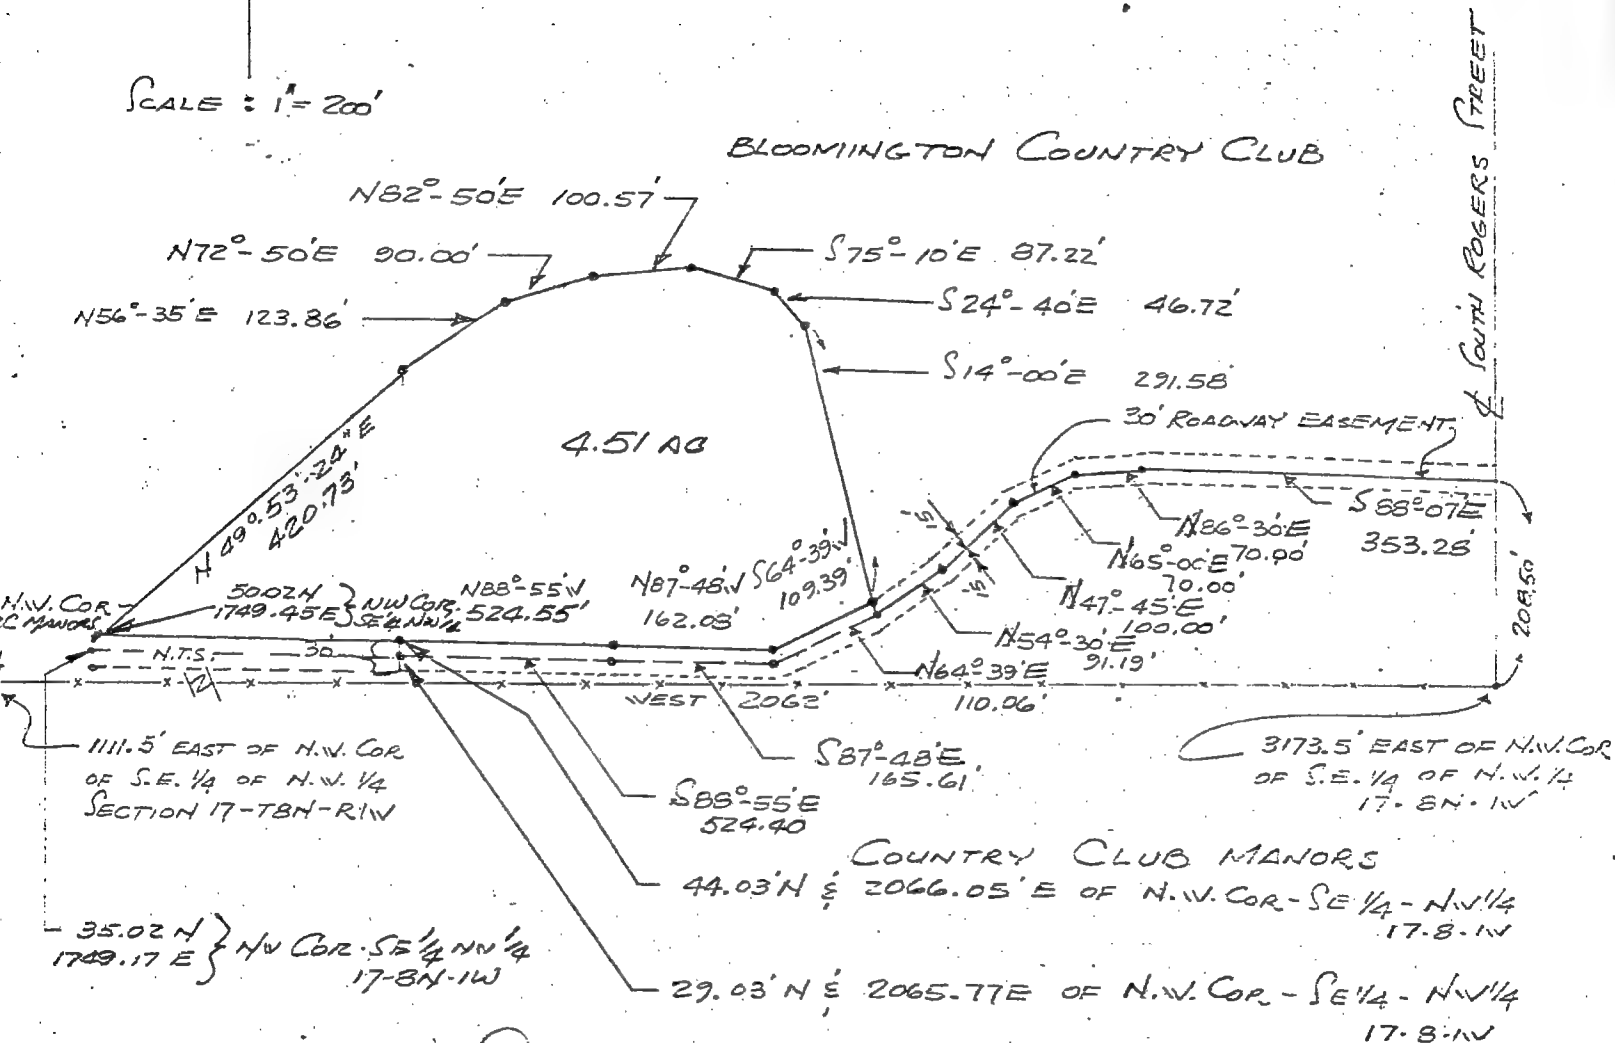 SCALE : 1" = 200'
BLOOMINGTON COUNTRY CLUB
℄ SOUTH ROGERS STREET
N82°-50'E 100.57'
N72°-50'E 90.00'
S75°-10'E 87.22'
N56°-35'E 123.86'
S24°-40'E 46.72'
S14°-00'E 291.58'
30' ROADWAY EASEMENT
4.51 AC
N 49°-53'-24" E
420.73'
S88°-07'E
353.28'
N86°-30'E
70.00'
N65°-00'E
70.00'
N47°-45'E
100.00'
N54°-30'E
91.19'
N64°-39'E
110.06'
15'
15'
208.50'
S64°-39'W
109.39'
N87°-48'W
162.03'
N88°-55'W
524.55'
50.02 N
1749.45 E } NW COR.
SE¼ NW¼
N.W. COR
CC MANORS
N.T.S.
30
WEST 2062'
1111.5' EAST OF N.W. COR
OF S.E. 1/4 OF N.W. 1/4
SECTION 17-T8N-R1W
S87°-48'E
165.61'
S88°-55'E
524.40
3173.5' EAST OF N.W. COR
OF S.E. 1/4 OF N.W. 1/4
17-8N-1W
COUNTRY CLUB MANORS
44.03'N & 2066.05'E OF N.W. COR - SE 1/4 - N.W 1/4
17-8-1W
35.02 N
1749.17 E } NW COR. SE 1/4 NW 1/4
17-8N-1W
29.03'N & 2065.77E OF N.W. COR - SE 1/4 - N.W 1/4
17-8-1W